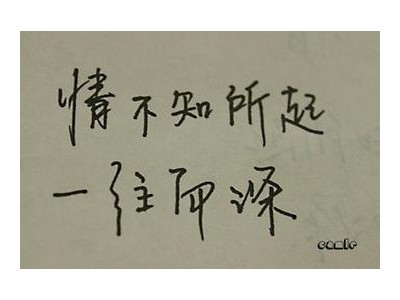 情不知所起
一往而深
comic